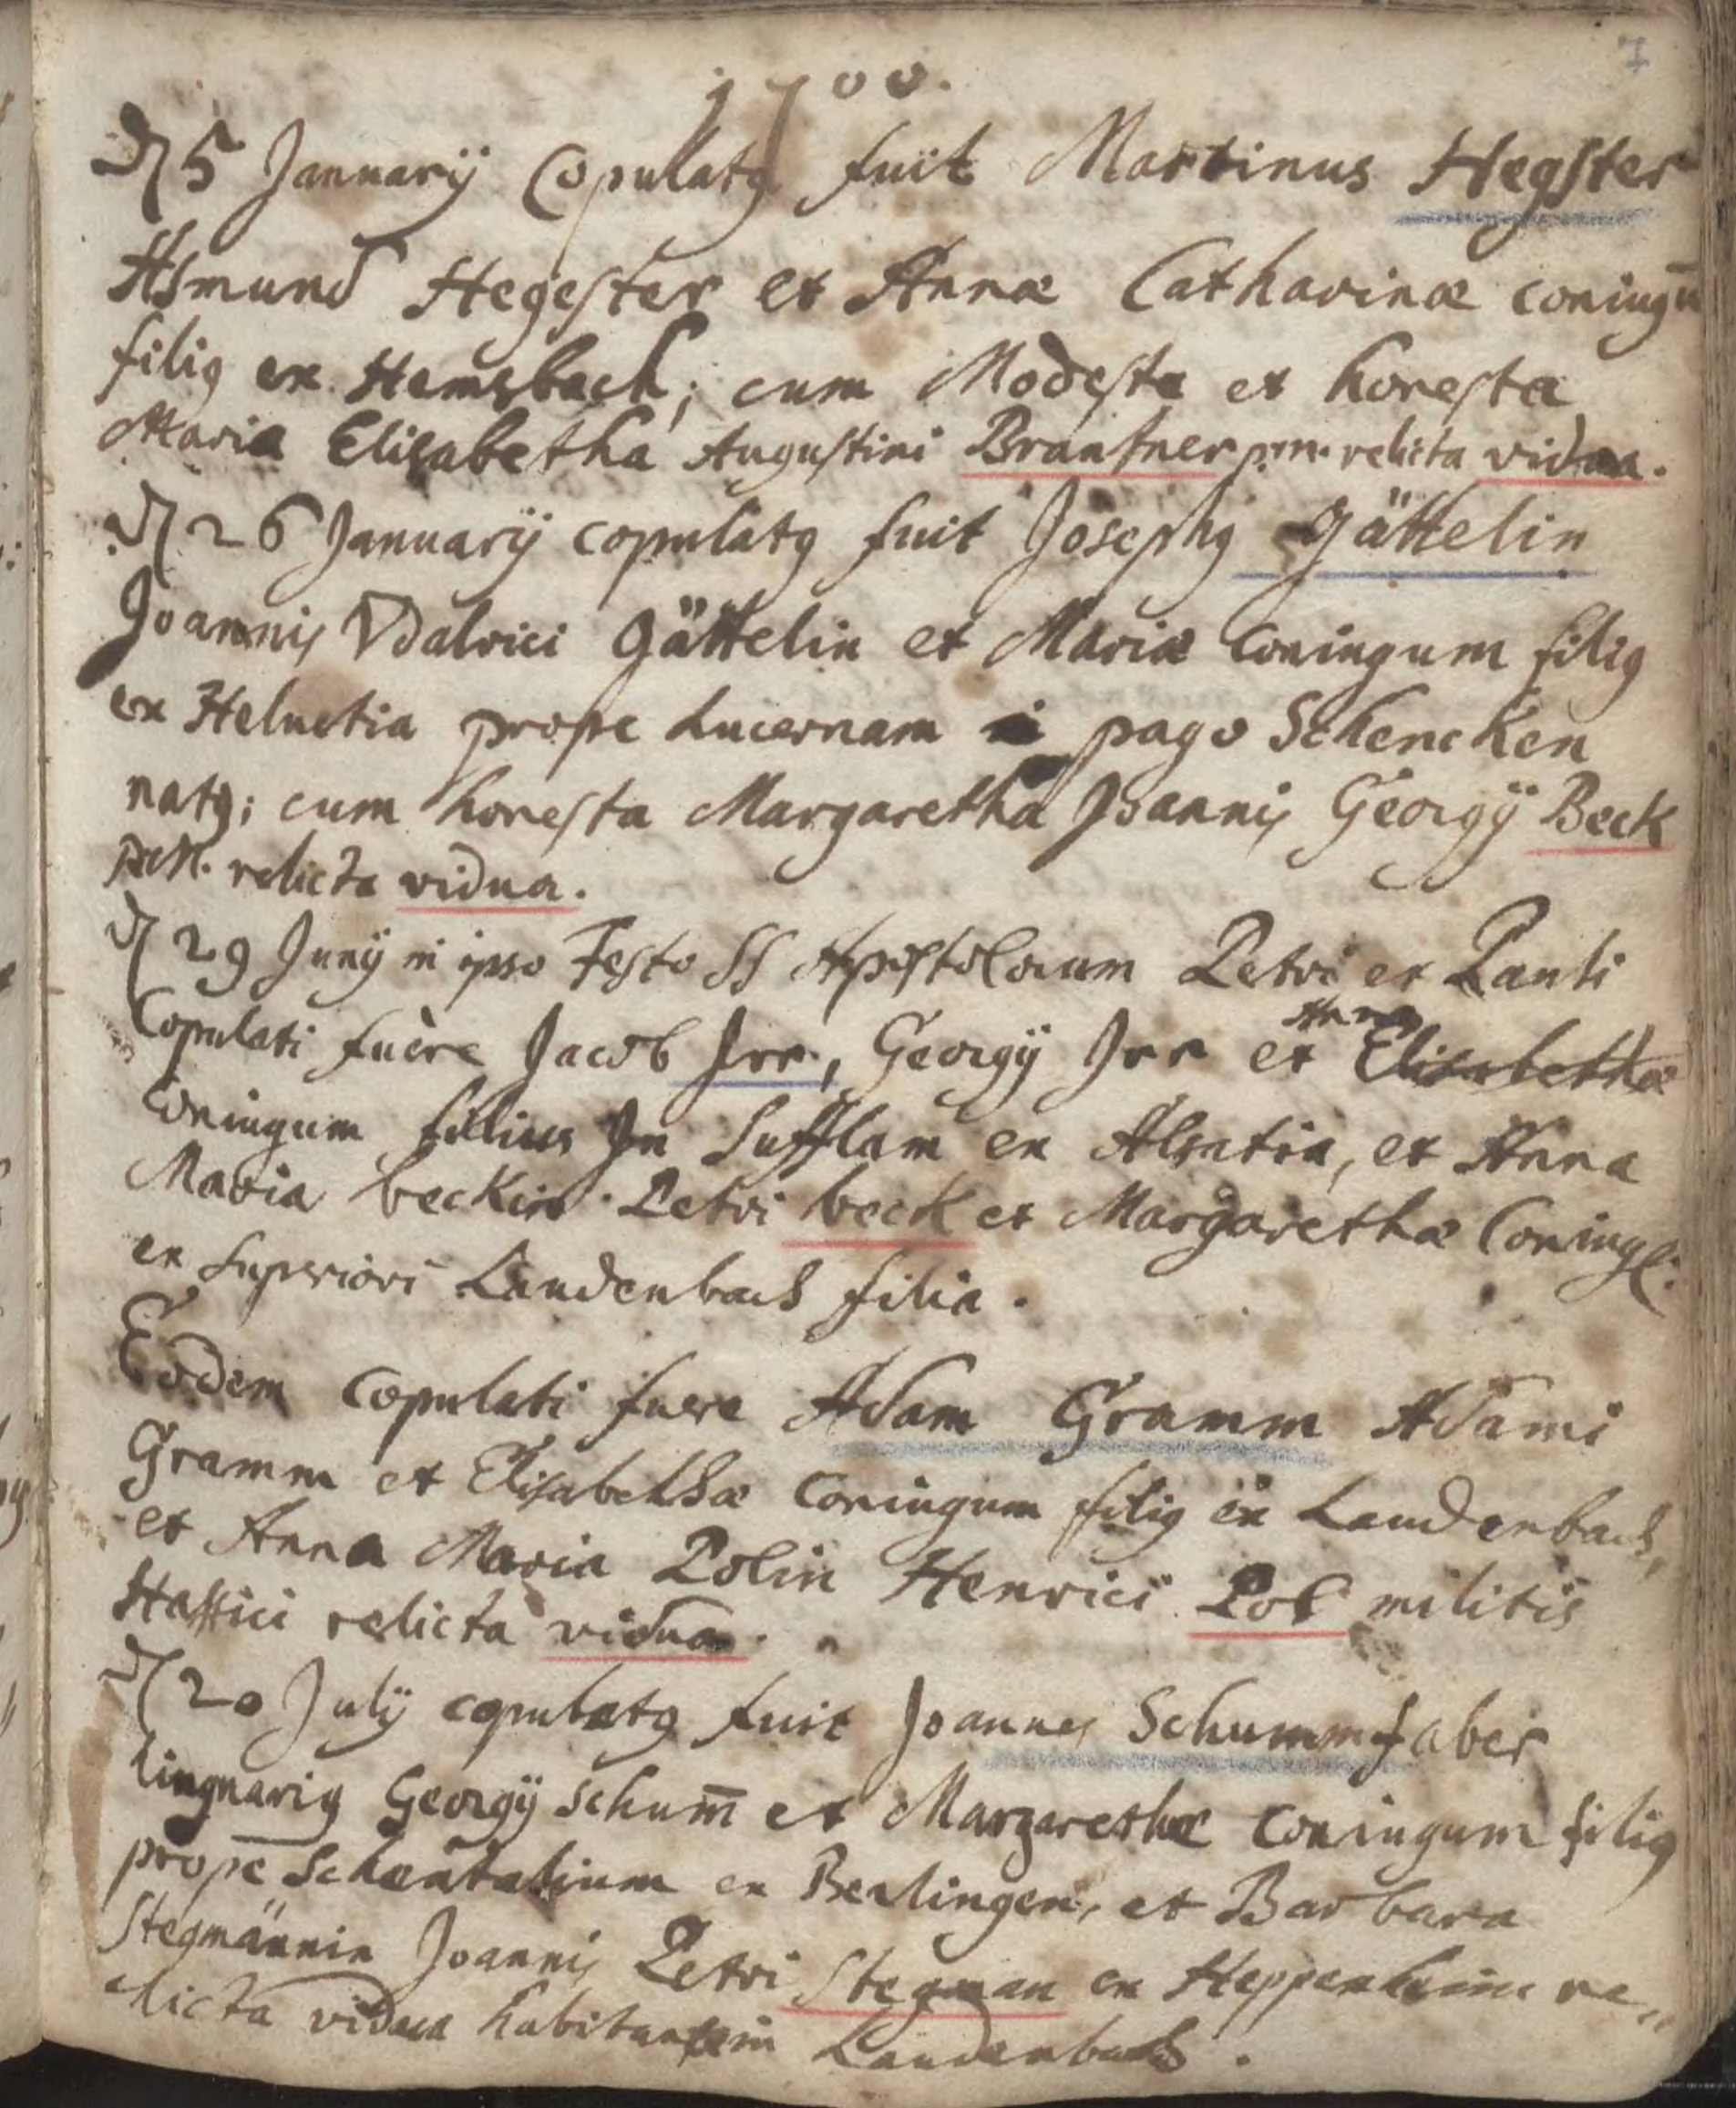 7
1700.
d 5 Januarÿ Copulatꝯ fuit Martinus Hegster
Asmund Hegester et Annæ Catharinæ coniugū
filiꝯ ex Hemsbach; cum Modesta et honesta
Maria Elisabetha Augustini Brantner p.m. relicta vidua.
d 26 Januarÿ copulatꝯ fuit Josephꝯ Gättelin
Joannis Vdalrici Gättelin et Mariæ Coniugum filiꝯ
ex Heluetia prope Lucernam i pago Schencken
natꝯ; cum honesta Margaretha Joannis Georgÿ Beck
relicta vidua.
d 29 Junÿ in ipso Festo SS Apostolorum Petri et Pauli
Copulati fuêre Jacob Jrr, Georgÿ Jrr et Anna Elisabethæ
coniugum filius Jn Sufflam ex Alsatia, et Anna
Maria beckin Petri beck et Margarethæ Coniug:
ex Superiori Laudenbach filia.
Eodem Copulati fuere Adam Gramm Adami
Gramm et Elisabethæ Coniugum filiꝯ ex Laudenbach,
et Anna Maria Polin Henrici Pol militis
Hassici relicta vidua.
d 20 Julÿ copulatꝯ fuit Joannes Schumm faber
lingnariꝯ Georgÿ Schum̄ et Margarethæ Coniugum filiꝯ
prope ex Berlingen, et Barbara
Stegmännin Joannis Petri Stegman ex Heppenheim re„
licta vidua habitans in Laudenbach.